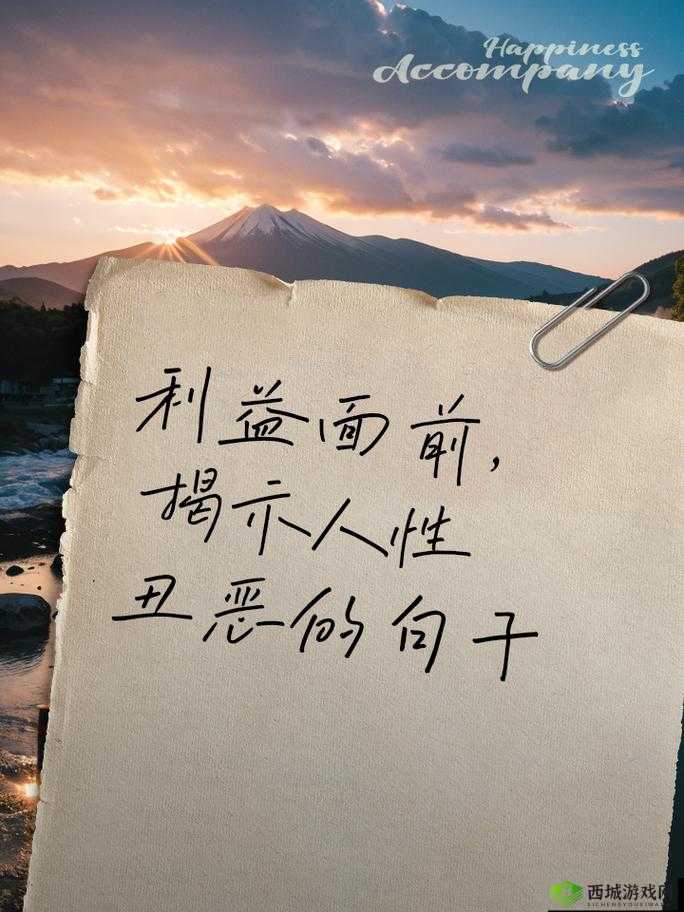 Happiness
Accompany
利益面前，
揭示人性
丑恶的句子
西城游戏网